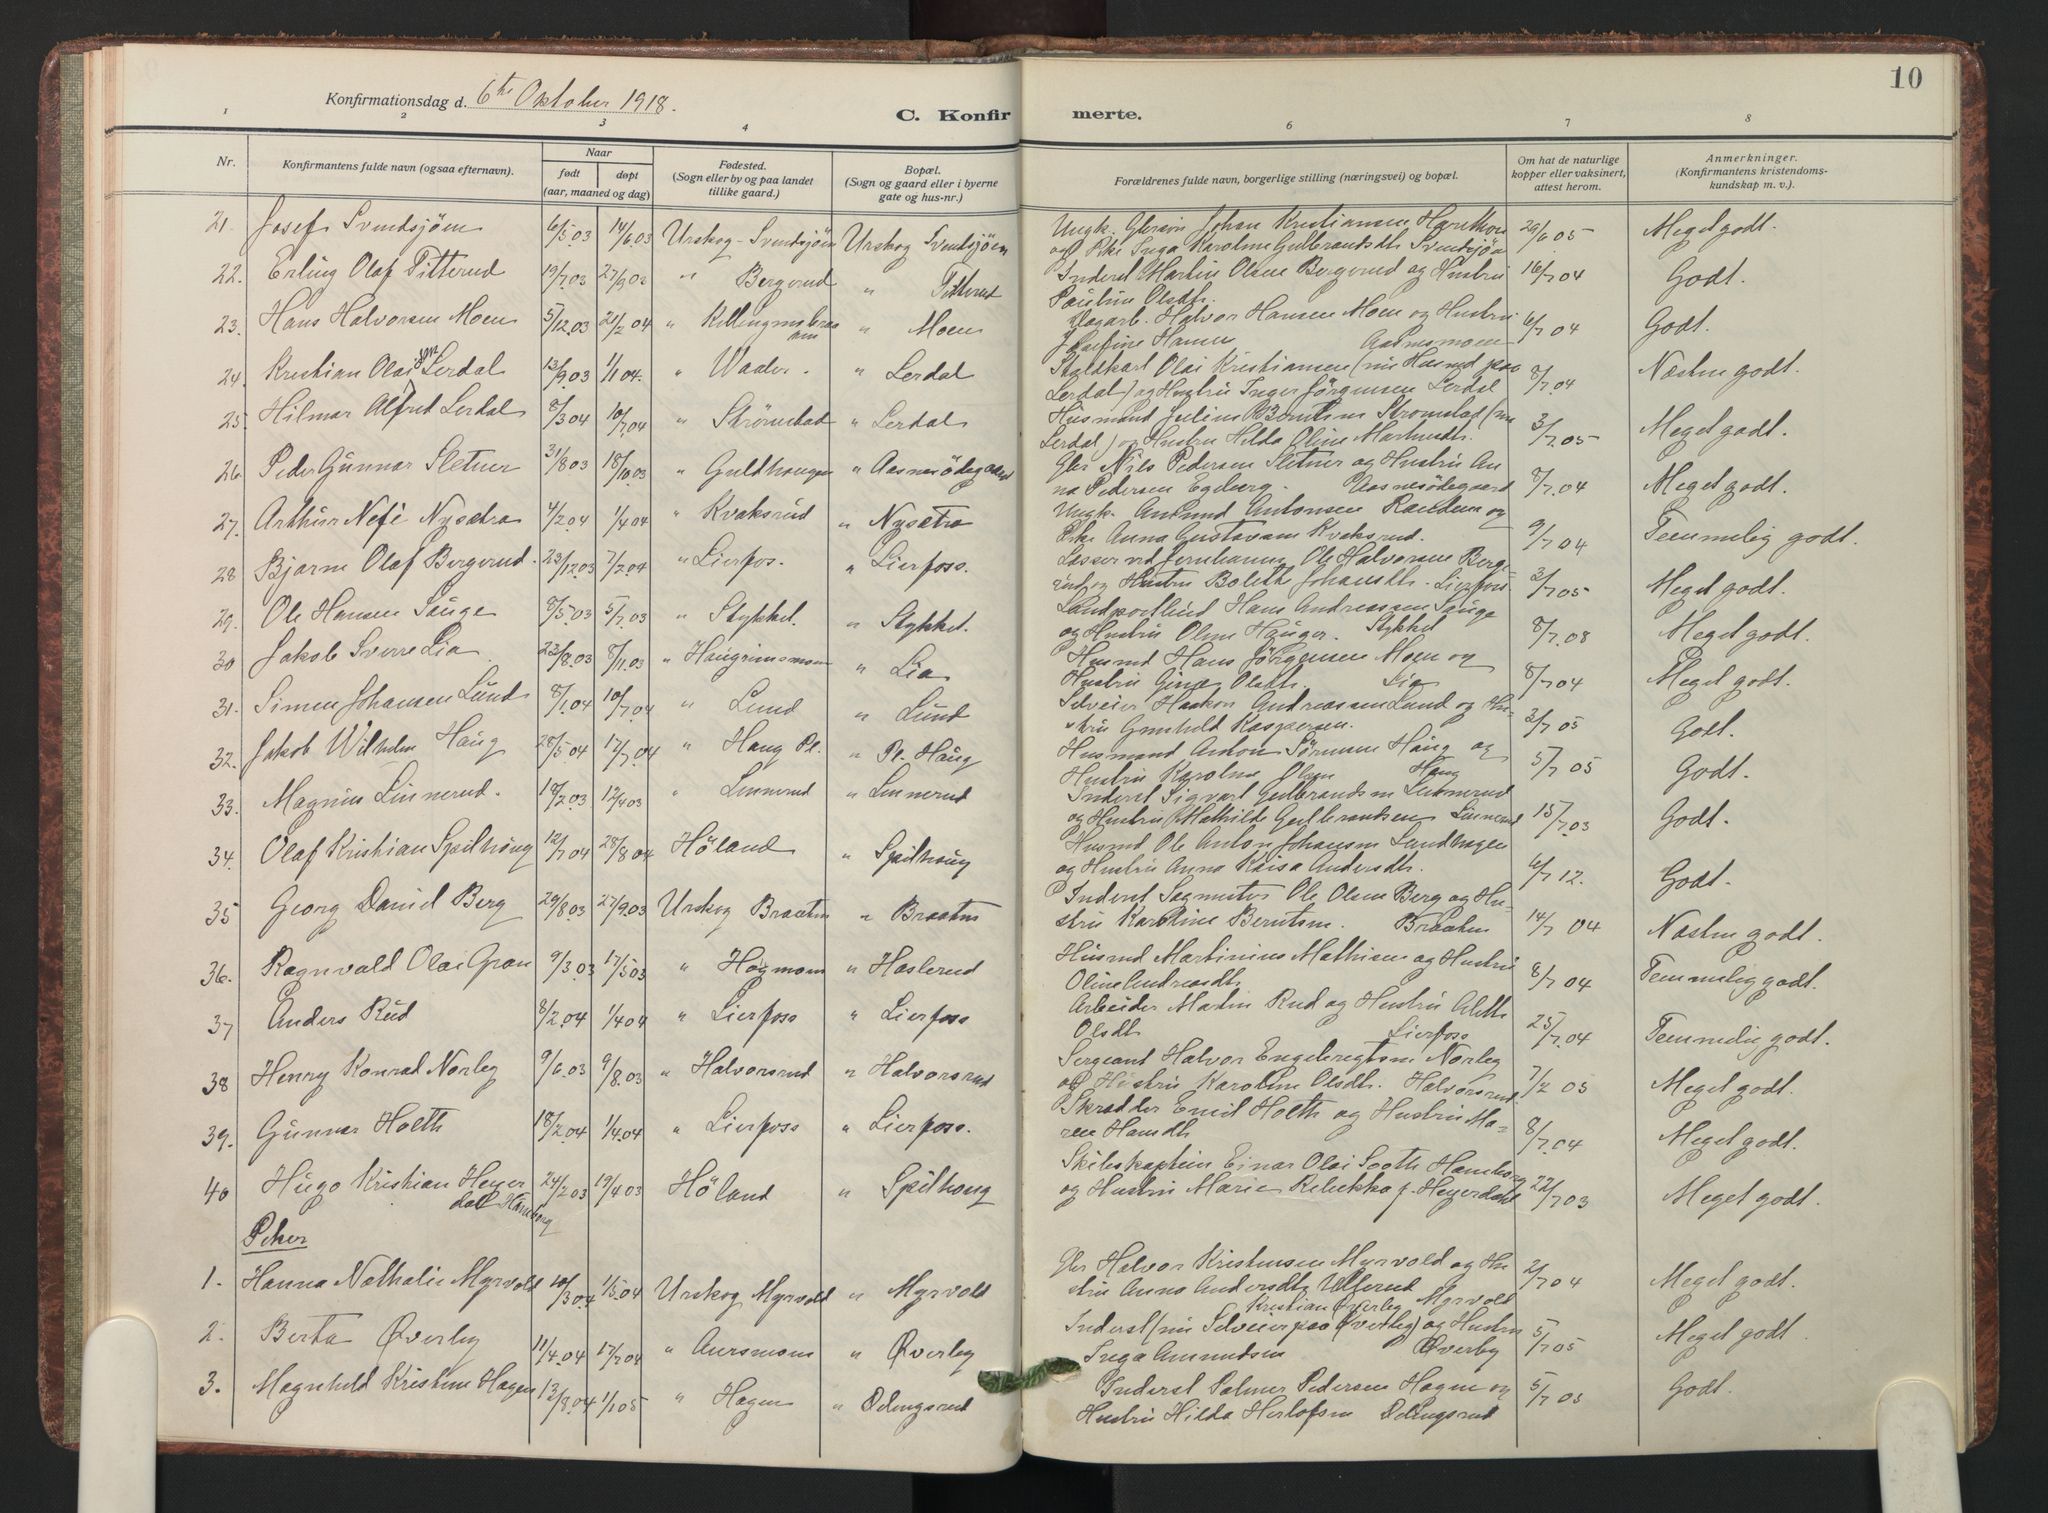 10
Konfirmationsdag d. 6te Oktober 1918.
C. Konfirmerte.
1 2 3 4 6 7 8
Nr.
Konfirmantens fulde navn (ogsaa efternavn).
Naar
født døpt
(aar, maaned og dag)
Fødested.
(Sogn eller by og paa landet
tillike gaard.)
Bopæl.
(Sogn og gaard eller i byerne
gate og hus-nr.)
Forældrenes fulde navn, borgerlige stilling (næringsvei) og bopæl.
Om hat de naturlige
kopper eller vaksinert,
attest herom.
Anmerkninger.
(Konfirmantens kristendoms-
kundskap m. v.).
21. Josef Svendsjöen 6/5.03 14/6.03 Urskog - Svendsjöen Urskog Svendsjöen
Ungk. Johan Kristiansen
og Pike Inga Karoline Gulbrandsdtr Svendsjöen Meget godt.
22. Erling Olaf Titterud 19/7.03 27/9 03 " Bergerud " Titterud
Inderst Martin Olsen Bergerud og Hustru 16/7 04 Godt.
Pauline Olsdtr.
23. Hans Halvorsen Moen 5/12.03 21/2 04 " " Moen
Dagarb. Halvor Hansen Moen og Hustru 6/7 04 Godt.
Josefine Hansen Aasmsmoen
24. Kristian Olaisen Lerdal 13/9.03 1/1 04. " Waaler. " Lerdal
Olai Kristiansen (nu Husmd paa
Lerdal) og Hustru Inger Jörgensen Lerdal 8/7 04 Næsten godt.
25. Hilmar Alfred Lerdal 8/3 04 10/7.04 " Strömstad " Lerdal
Husmand Julius Berntsen Strömstad (nu
Lerdal) og Hustru Hilda Oline Martinsdtr. 3/7.05 Meget godt.
26. Peder Gunnar Sletner 31/8.03 18/10.03 " Guldhaugen " Aasnesödegaard
Gbr Nils Pedersen Sletner og Hustru An
na Pedersen Egeberg. Aasnesödegaard 8/7.04 Meget godt.
27. Arthur Nefi Nysætra 4/2.04 1/4 04 " Kvaksrud " Nysætra
Ungk. Amund Antonsen Randem og
Pike Anna Gustavsen Kvaksrud. 9/7 04 Temmelig godt.
28 Bjarne Olaf Bergerud. 23/12.03 7/2.04 " Lierfos. " Lierfoss.
Lasser ved Jernbanen Ole Halvorsen Berg-
erud og Hustru Bolette Johansdtr. Lierfoss 3/7 05 Meget godt.
29. Ole Hansen Sauge 8/5.03 5/7.03 " Stykket. " Stykket.
Landpostbud Hans Andreassen Sauge
og Hustru Oline Hauger. Stykket 8/7.08 Meget godt.
30 Jakob Sverre Lia 23/8.03 8/11.03 " Haugrimsmoen " Lia
Husmd Hans Jörgensen Moen og
Hustru Gina Olsdtr. Lia 8/7 04 Meget godt.
31. Simen Johansen Lund 8/1.04 10/7.04 " Lund " Lund
Selveier Haakon Andreassen Lund og Hu-
stru Gunhild Kaspersen. 3/7 05 Godt.
32. Jakob Wilhelm Haug 28/5.04 17/7.04 " Haug Pl. " Pl. Haug
Husmand Anton Sörensen Haug og
Hustru Karoline Olsen Haug 5/7 05 Godt.
33. Magnus Linnerud. 18/2.03 12/4 03 " Linnerud " Linnerud
Inderst Sigvart Gulbrandsen Linnerud
og Hustru Mathilde Gulbrandsen Linnerud 15/7.03 Godt.
34. Olaf Kristian Spilhaug 12/7 04 28/8 04 Höland " Spilhaug
Husmd Ole Anton Johansen Sandhagen
og Hustru Anna Kaisa Andersdtr. 6/7 12. Godt.
35 Georg Daniel Berg 29/8.03 27/9.03 Urskog Braaten " Braaten
Inderst Sagmester Ole Olsen Berg og Hu-
stru Karoline Berntsen. Braaten 14/7 04 Næsten godt.
36. Ragnvald Olai Gran 9/3.03 17/5 03 " Hogmoen " Haslerud
Husmd Martinius Mathisen og Hustru
Oline Andreasdtr 8/7 04 Temmelig godt.
37 Anders Rud 8/2.04 1/4 04 " Lierfoss " Lierfoss
Arbeider Martin Rud og Hustru Alette
Olsdtr Lierfoss 25/7.04 Temmelig godt.
38 Henry Konrad Norby 9/6.03 9/8.03 " Halvorsrud " Halvorsrud
Sergeant Halvor Engebregtsen Norby
og Hustru Karoline Olsdtr. Halvorsrud 7/2 05 Meget godt.
39. Gunnar Holth 18/2.04 1/4.04 " Lierfoss " Lierfoss.
Skrædder Emil Holth og Hustru Ma-
ren Hansdtr 8/7.04 Meget godt.
40 Hugo Kristian Heyer 24/2 03 19/4 03 Höland " Spilhaug
dal Haneborg
Skibskaptein Einar Olai Sooth Haneborg
og Hustru Marie Rebekka f. Heyerdahl 22/7 03 Meget godt.
Piker
1. Hanna Nathalie Myrvold 10/3 04 1/5.04 Urskog Myrvold " Myrvold
Gbr Halvor Kristensen Myrvold og Hu
stru Anna Andersdtr Ullerud Myrvold 2/7 04 Meget godt.
2. Berta Øverby 11/4.04 17/7 04 " Aursmoen " Øverby
Kristian Øverby
Inderst (nu Selveier paa Øverby) og Hustru
Inga Amundsen Øverby 5/7 05 Meget godt.
3. Magnhild Kristine Hagen 13/8.04 1/1 05 " Hagen " Ödingsrud
Inderst Palmer Pedersen Hagen og
Hustru Hilda Herlofsen Ödingsrud 5/7 05 Godt.